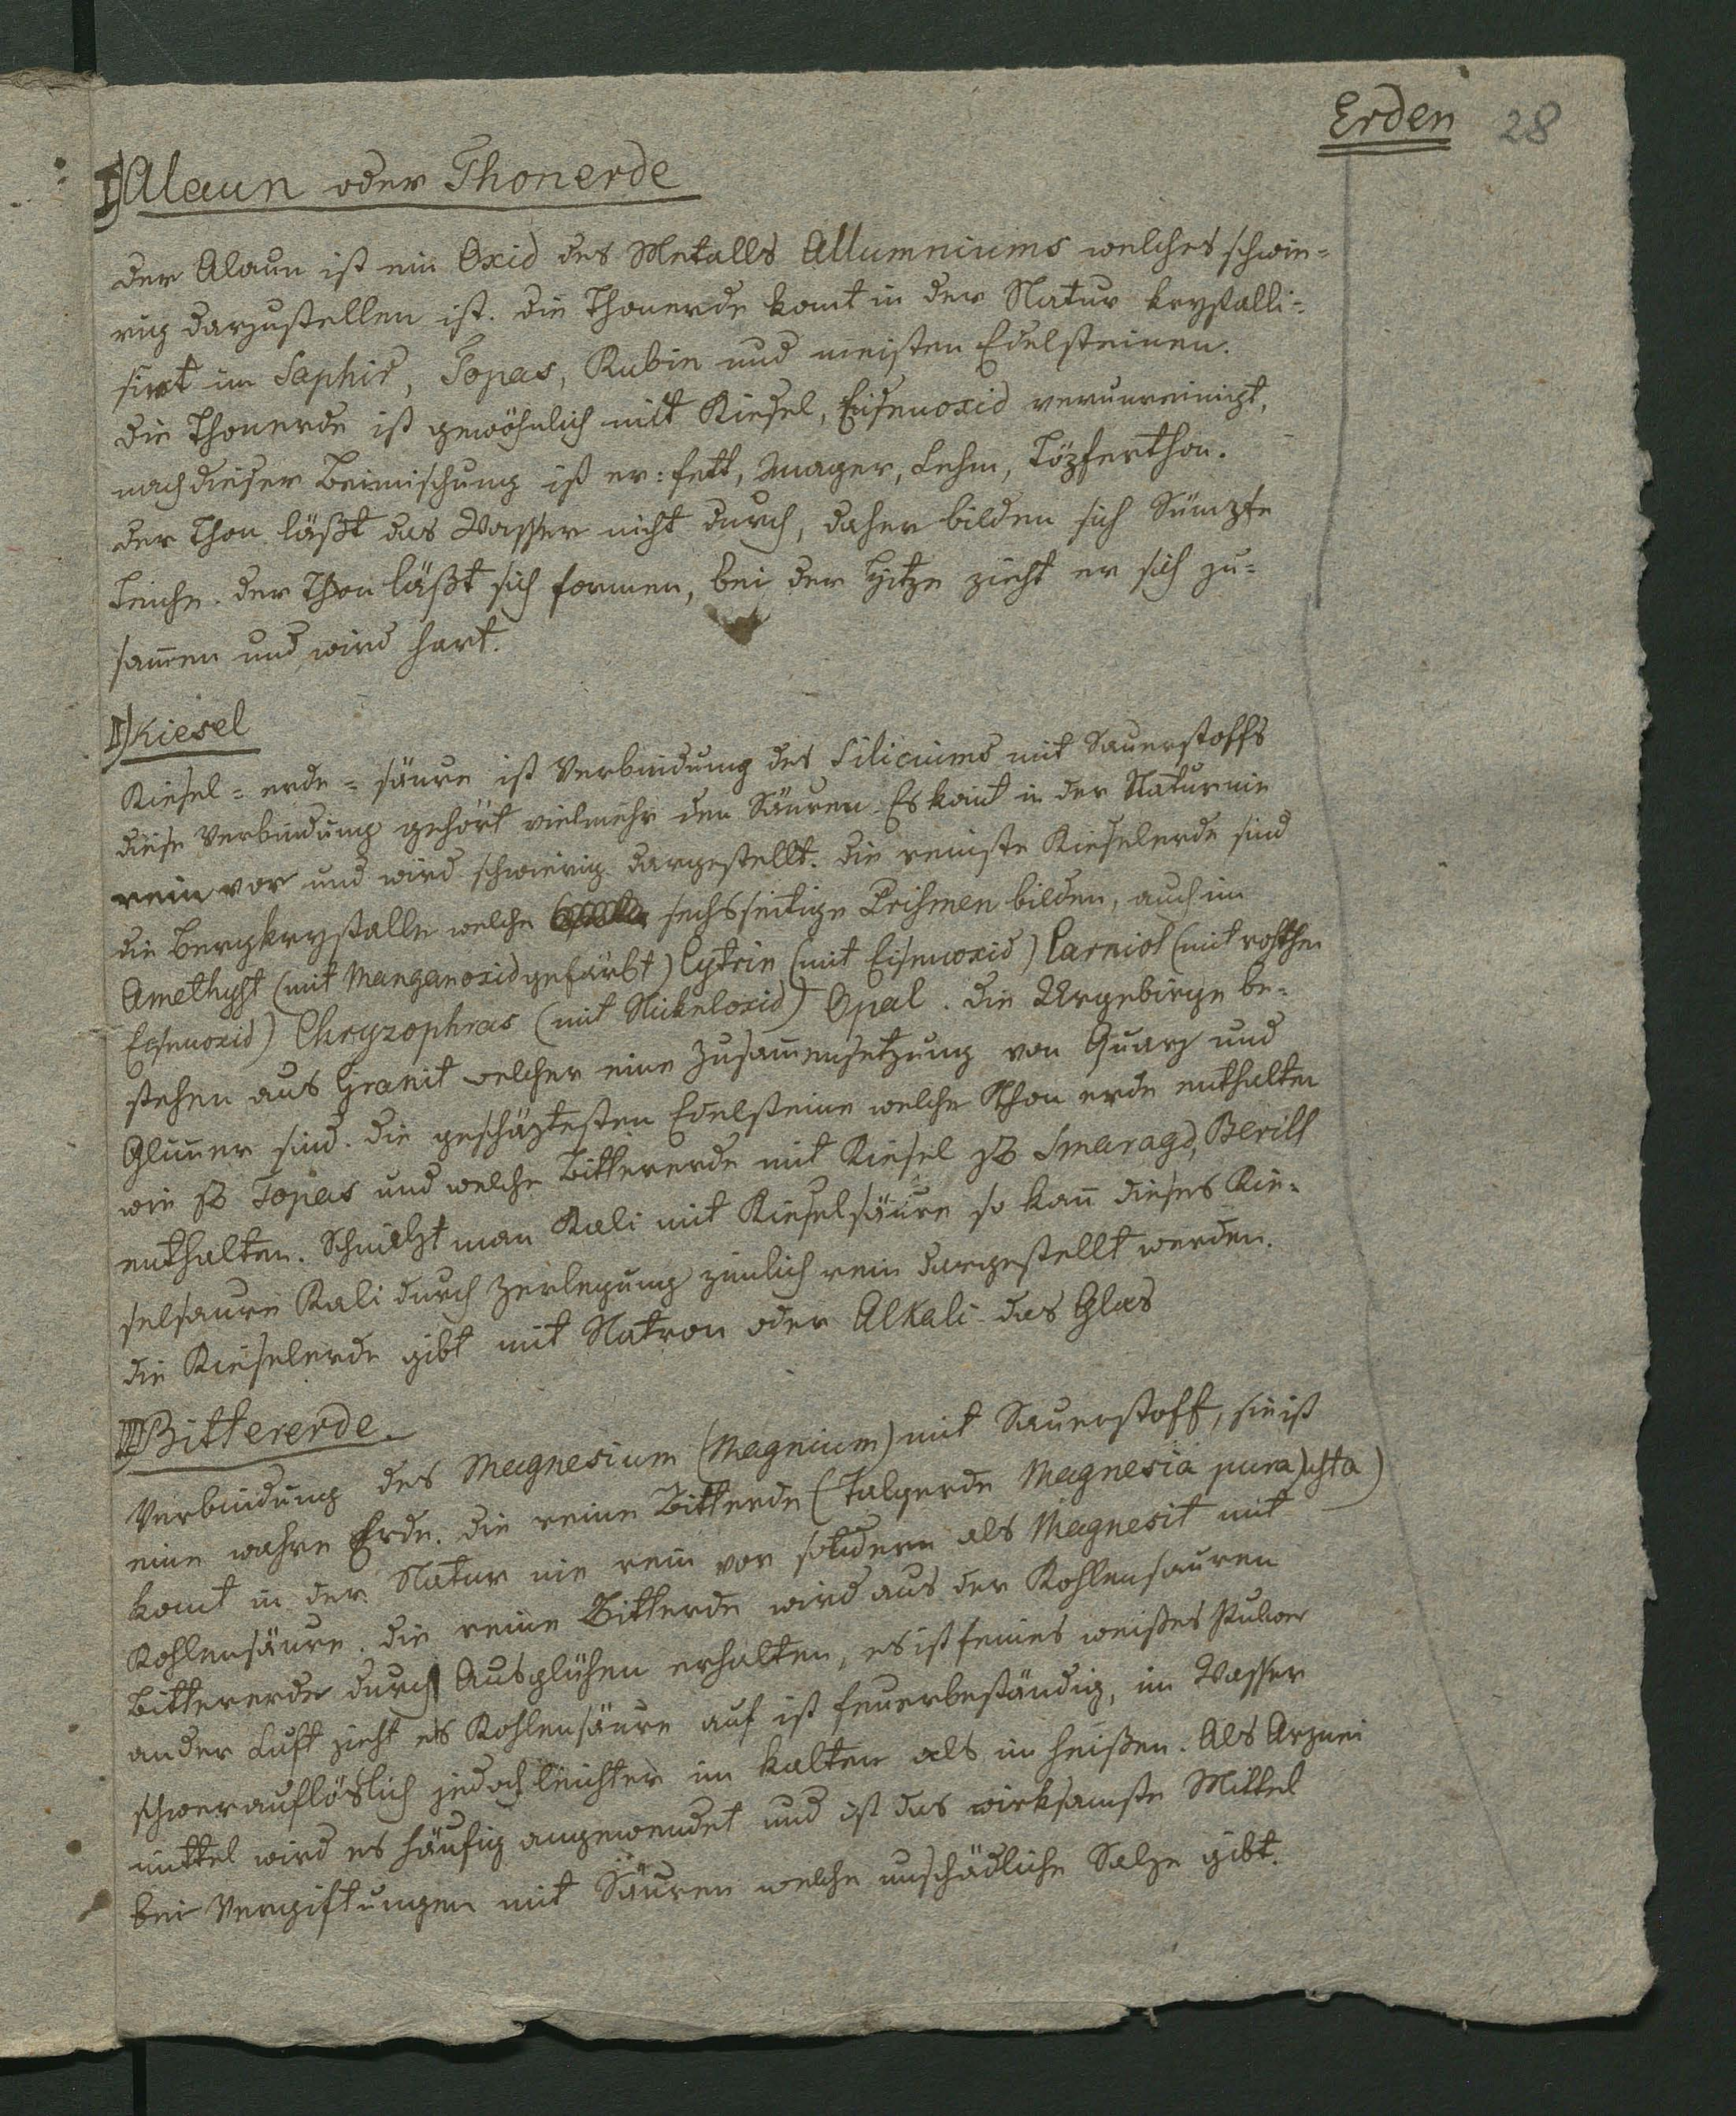 Erden 28
I) Alaun oder Thonerde
der Alaun ist ein Oxid des Metalls Allumniums welches schwie-
rig darzustellen ist. die Thonerde komt in der Natur krystalli-
sirt im Saphir, Topas, Rubin und meisten Edelsteinen.
die Thonerde ist gewöhnlich mit Kiesel, Eisenoxid verunreinigt,
nach dieser Beimischung ist er: fett, mager, Lehm, Töpferthon.
der Thon läßt das Wasser nicht durch, daher bilden sich Sümpfe
Teiche. der Thon läßt sich formen, bei der Hitze zieht er sich zu-
sam̄en und wird hart.
II) Kiesel
Kiesel-erde-säure ist Verbindung des Siliciums mit Sauerstoffs
diese Verbindung gehört vielmehr den Säuren. Es komt in der Natur nie
rein vor und wird schwierig dargestellt. die reinste Kieselerde sind
die Bergkrystalle welche sechsseitige Prismen bilden, auch im
Amethyst (mit Manganoxid gefärbt) Cytrin (mit Eisenoxid) Carniol (mit rothen
Eisenoxid) Chryzophras (mit Nikeloxid) Opal. die Urgebirge be-
stehen aus Granit welcher eine Zusam̄ensetzung von Quarz und
Glim̄er sind. die geschäztesten Edelsteine welche Thonerde enthalten
wie zB Topas und welche Bittererde mit Kiesel zB Smaragd, Berill
enthalten. Schmelzt man Kali mit Kieselsäure so kan̄ dieses Kie-
selsaure Kali durch Zerlegung zimlich rein dargestellt werden.
die Kieselerde gibt mit Natron oder Alkali das Glas
III) Bittererde.
Verbindung des Magnesium (Magnium) mit Sauerstoff, sie ist
eine wahre Erde. die reine Bitterde (Talgerde Magnesia pura) usta)
komt in der Natur nie rein vor sondern als Magnesit mit
Kohlensäure. die reine Bitterde wird aus der Kohlensauren
Bittererde durch Ausglühen erhalten, es ist feines weißes Pulver
an der Luft zieht es Kohlensäure auf ist feuerbeständig, im Wasser
schwerauflöslich jedoch leichter im kalten als im heißen. Als Arznei
mittel wird es häufig angewendet und ist das wirksamste Mittel
bei Vergiftungen mit Säuren welche unschädliche Salze gibt.